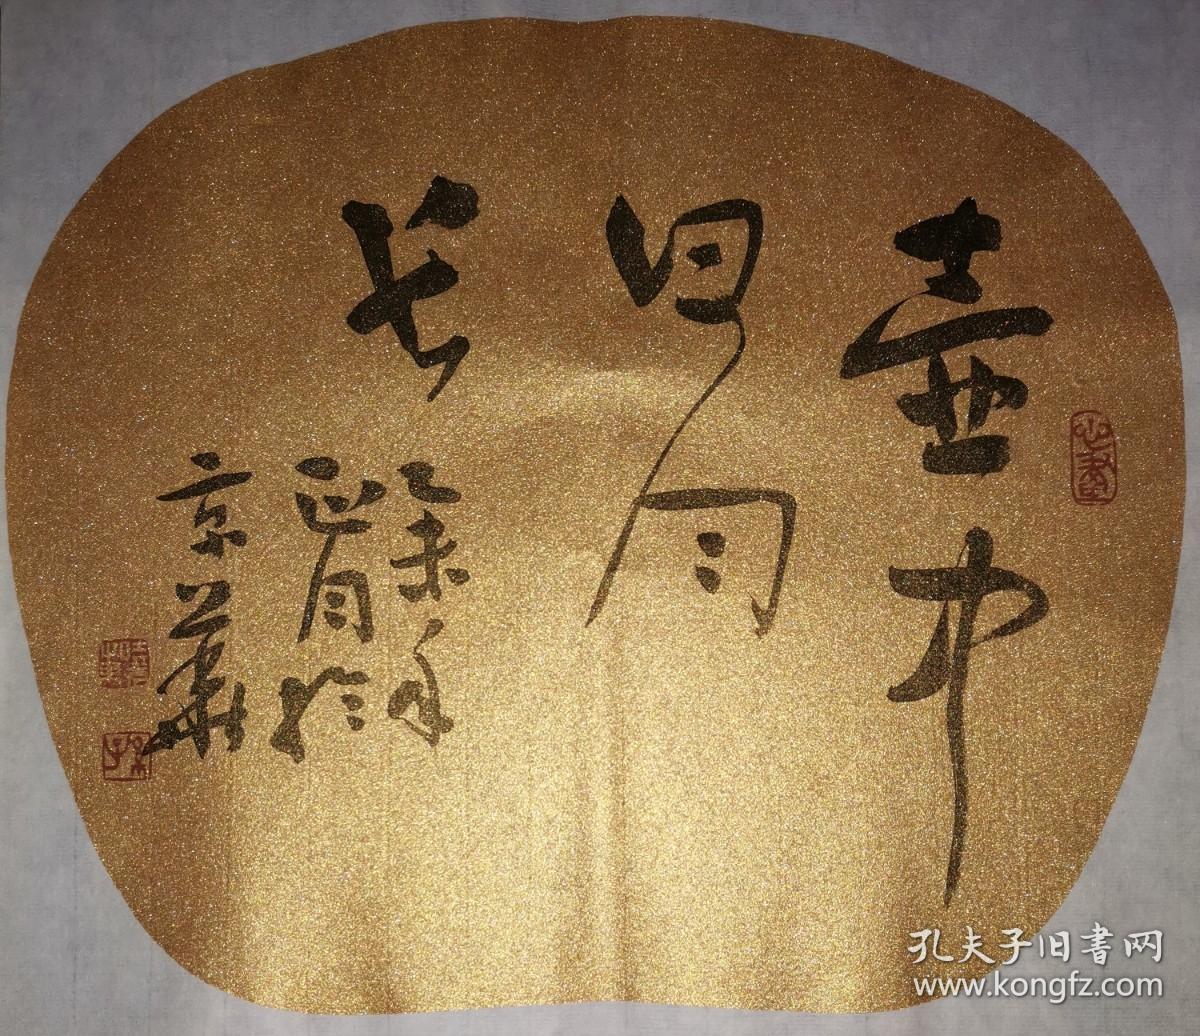 壶中
日月
长
乙未年
正月於
京华
孔夫子旧书网
www.kongfz.com